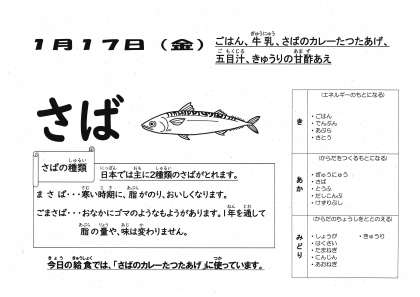 1月17日（金）
ごはん、牛乳、さばのカレーたつたあげ、
五目汁、きゅうりの甘酢あえ
さば
さばの種類
日本では主に2種類のさばがとれます。
まさば・・・寒い時期に、脂がのり、おいしくなります。
ごまさば・・・おなかにゴマのようなもようがあります。1年を通して
脂の量や、味は変わりません。
今日の給食では、「さばのカレーたつたあげ」に使っています。
（エネルギーのもとになる）
き
・ごはん
・でんぷん
・あぶら
・さとう
（からだをつくるもとになる）
あか
・ぎゅうにゅう
・さば
・とうふ
・だしこんぶ
・けずりぶし
（からだのちょうしをととのえる）
みどり
・しょうが ・きゅうり
・はくさい
・たまねぎ
・にんじん
・あおねぎ